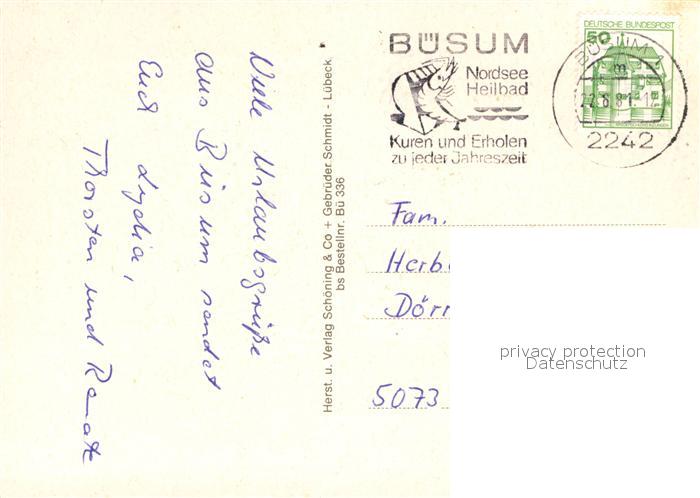 Viele Urlaubsgrüße
aus Büsum sendet
Euch Lydia,
Thorsten und Renate
Herst. u. Verlag Schöning & Co + Gebrüder Schmidt - Lübeck
bs Bestellnr. Bü 336
BÜSUM
Nordsee
Heilbad
Kuren und Erholen
zu jeder Jahreszeit
DEUTSCHE BUNDESPOST
50
BÜSUM 1
m
22.6.81-12
2242
Fam.
Herb
Dörr
5073
privacy protection
Datenschutz